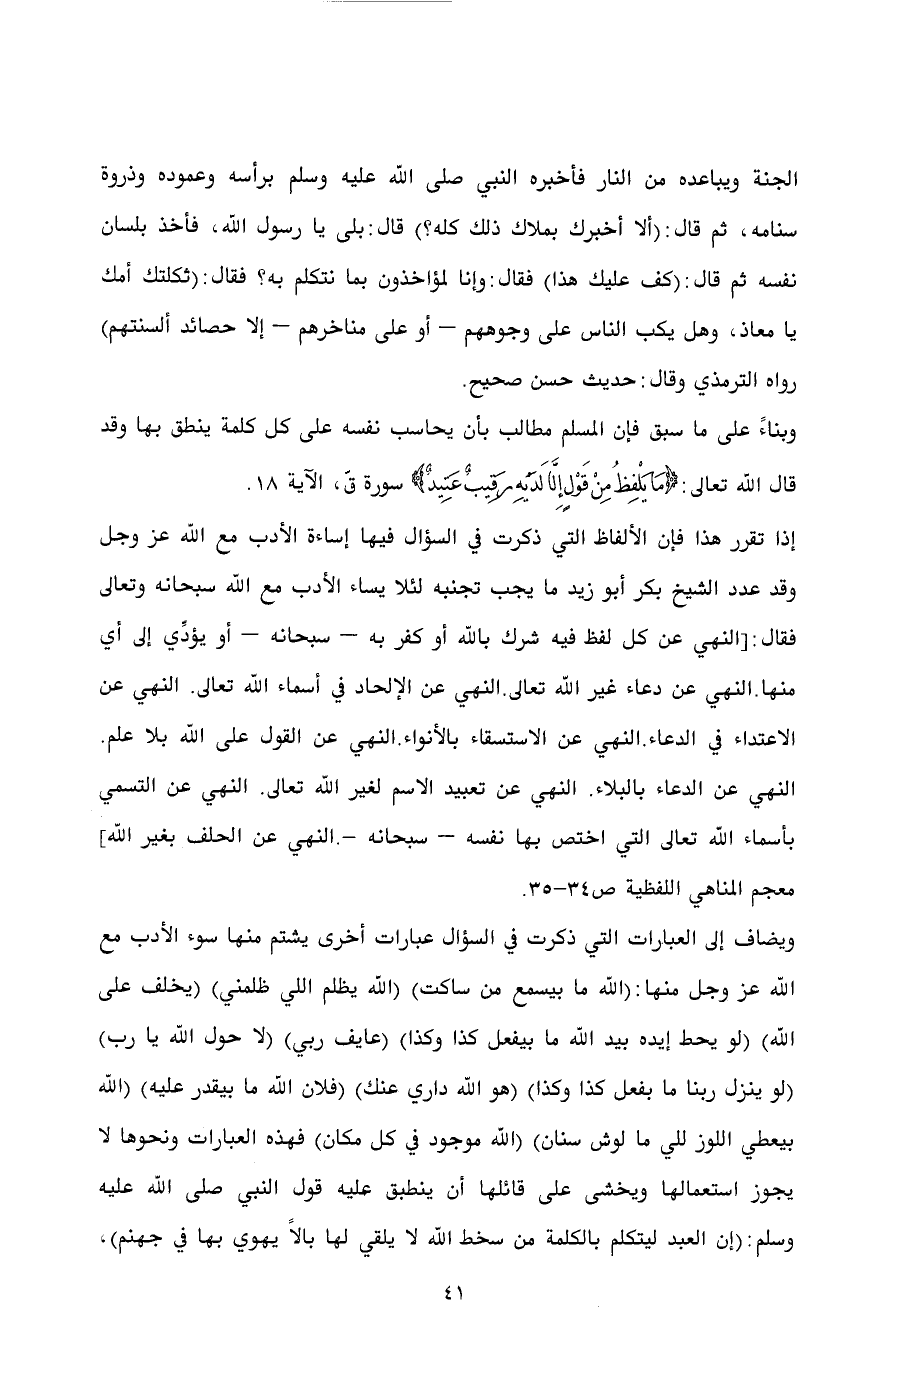 الجنة ويباعده من النار فأخبره النبي صلى الله عليه وسلم برأسه وعموده وذروة
سنامه، ثم قال:(ألا أخبرك بملاك ذلك كله؟) قال:بلى يا رسول الله، فأخذ بلسان
نفسه ثم قال:(كف عليك هذا) فقال:وإنا لمؤاخذون بما نتكلم به؟ فقال:(ثكلتك أمك
يا معاذ، وهل يكب الناس على وجوههم – أو على مناخرهم – إلا حصائد ألسنتهم)
رواه الترمذي وقال:حديث حسن صحيح.
وبناءً على ما سبق فإن المسلم مطالب بأن يحاسب نفسه على كل كلمة ينطق بها وقد
قال الله تعالى:﴿مَا يَلْفِظُ مِنْ قَوْلٍ إِلَّا لَدَيْهِ رَقِيبٌ عَتِيدٌ﴾ سورة قَ، الآية ١٨.
إذا تقرر هذا فإن الألفاظ التي ذكرت في السؤال فيها إساءة الأدب مع الله عز وجل
وقد عدد الشيخ بكر أبو زيد ما يجب تجنبه لئلا يساء الأدب مع الله سبحانه وتعالى
فقال:[النهي عن كل لفظ فيه شرك بالله أو كفر به – سبحانه – أو يؤدِّي إلى أي
منها.النهي عن دعاء غير الله تعالى.النهي عن الإلحاد في أسماء الله تعالى. النهي عن
الاعتداء في الدعاء.النهي عن الاستسقاء بالأنواء.النهي عن القول على الله بلا علم.
النهي عن الدعاء بالبلاء. النهي عن تعبيد الاسم لغير الله تعالى. النهي عن التسمي
بأسماء الله تعالى التي اختص بها نفسه – سبحانه –.النهي عن الحلف بغير الله]
معجم المناهي اللفظية ص٣٤-٣٥.
ويضاف إلى العبارات التي ذكرت في السؤال عبارات أخرى يشتم منها سوء الأدب مع
الله عز وجل منها:(الله ما بيسمع من ساكت) (الله يظلم اللي ظلمني) (يخلف على
الله) (لو يحط إيده بيد الله ما بيفعل كذا وكذا) (عايف ربي) (لا حول الله يا رب)
(لو ينزل ربنا ما بفعل كذا وكذا) (هو الله داري عنك) (فلان الله ما بيقدر عليه) (الله
بيعطي اللوز للي ما لوش سنان) (الله موجود في كل مكان) فهذه العبارات ونحوها لا
يجوز استعمالها ويخشى على قائلها أن ينطبق عليه قول النبي صلى الله عليه
وسلم:(إن العبد ليتكلم بالكلمة من سخط الله لا يلقي لها بالاً يهوي بها في جهنم)،
٤١